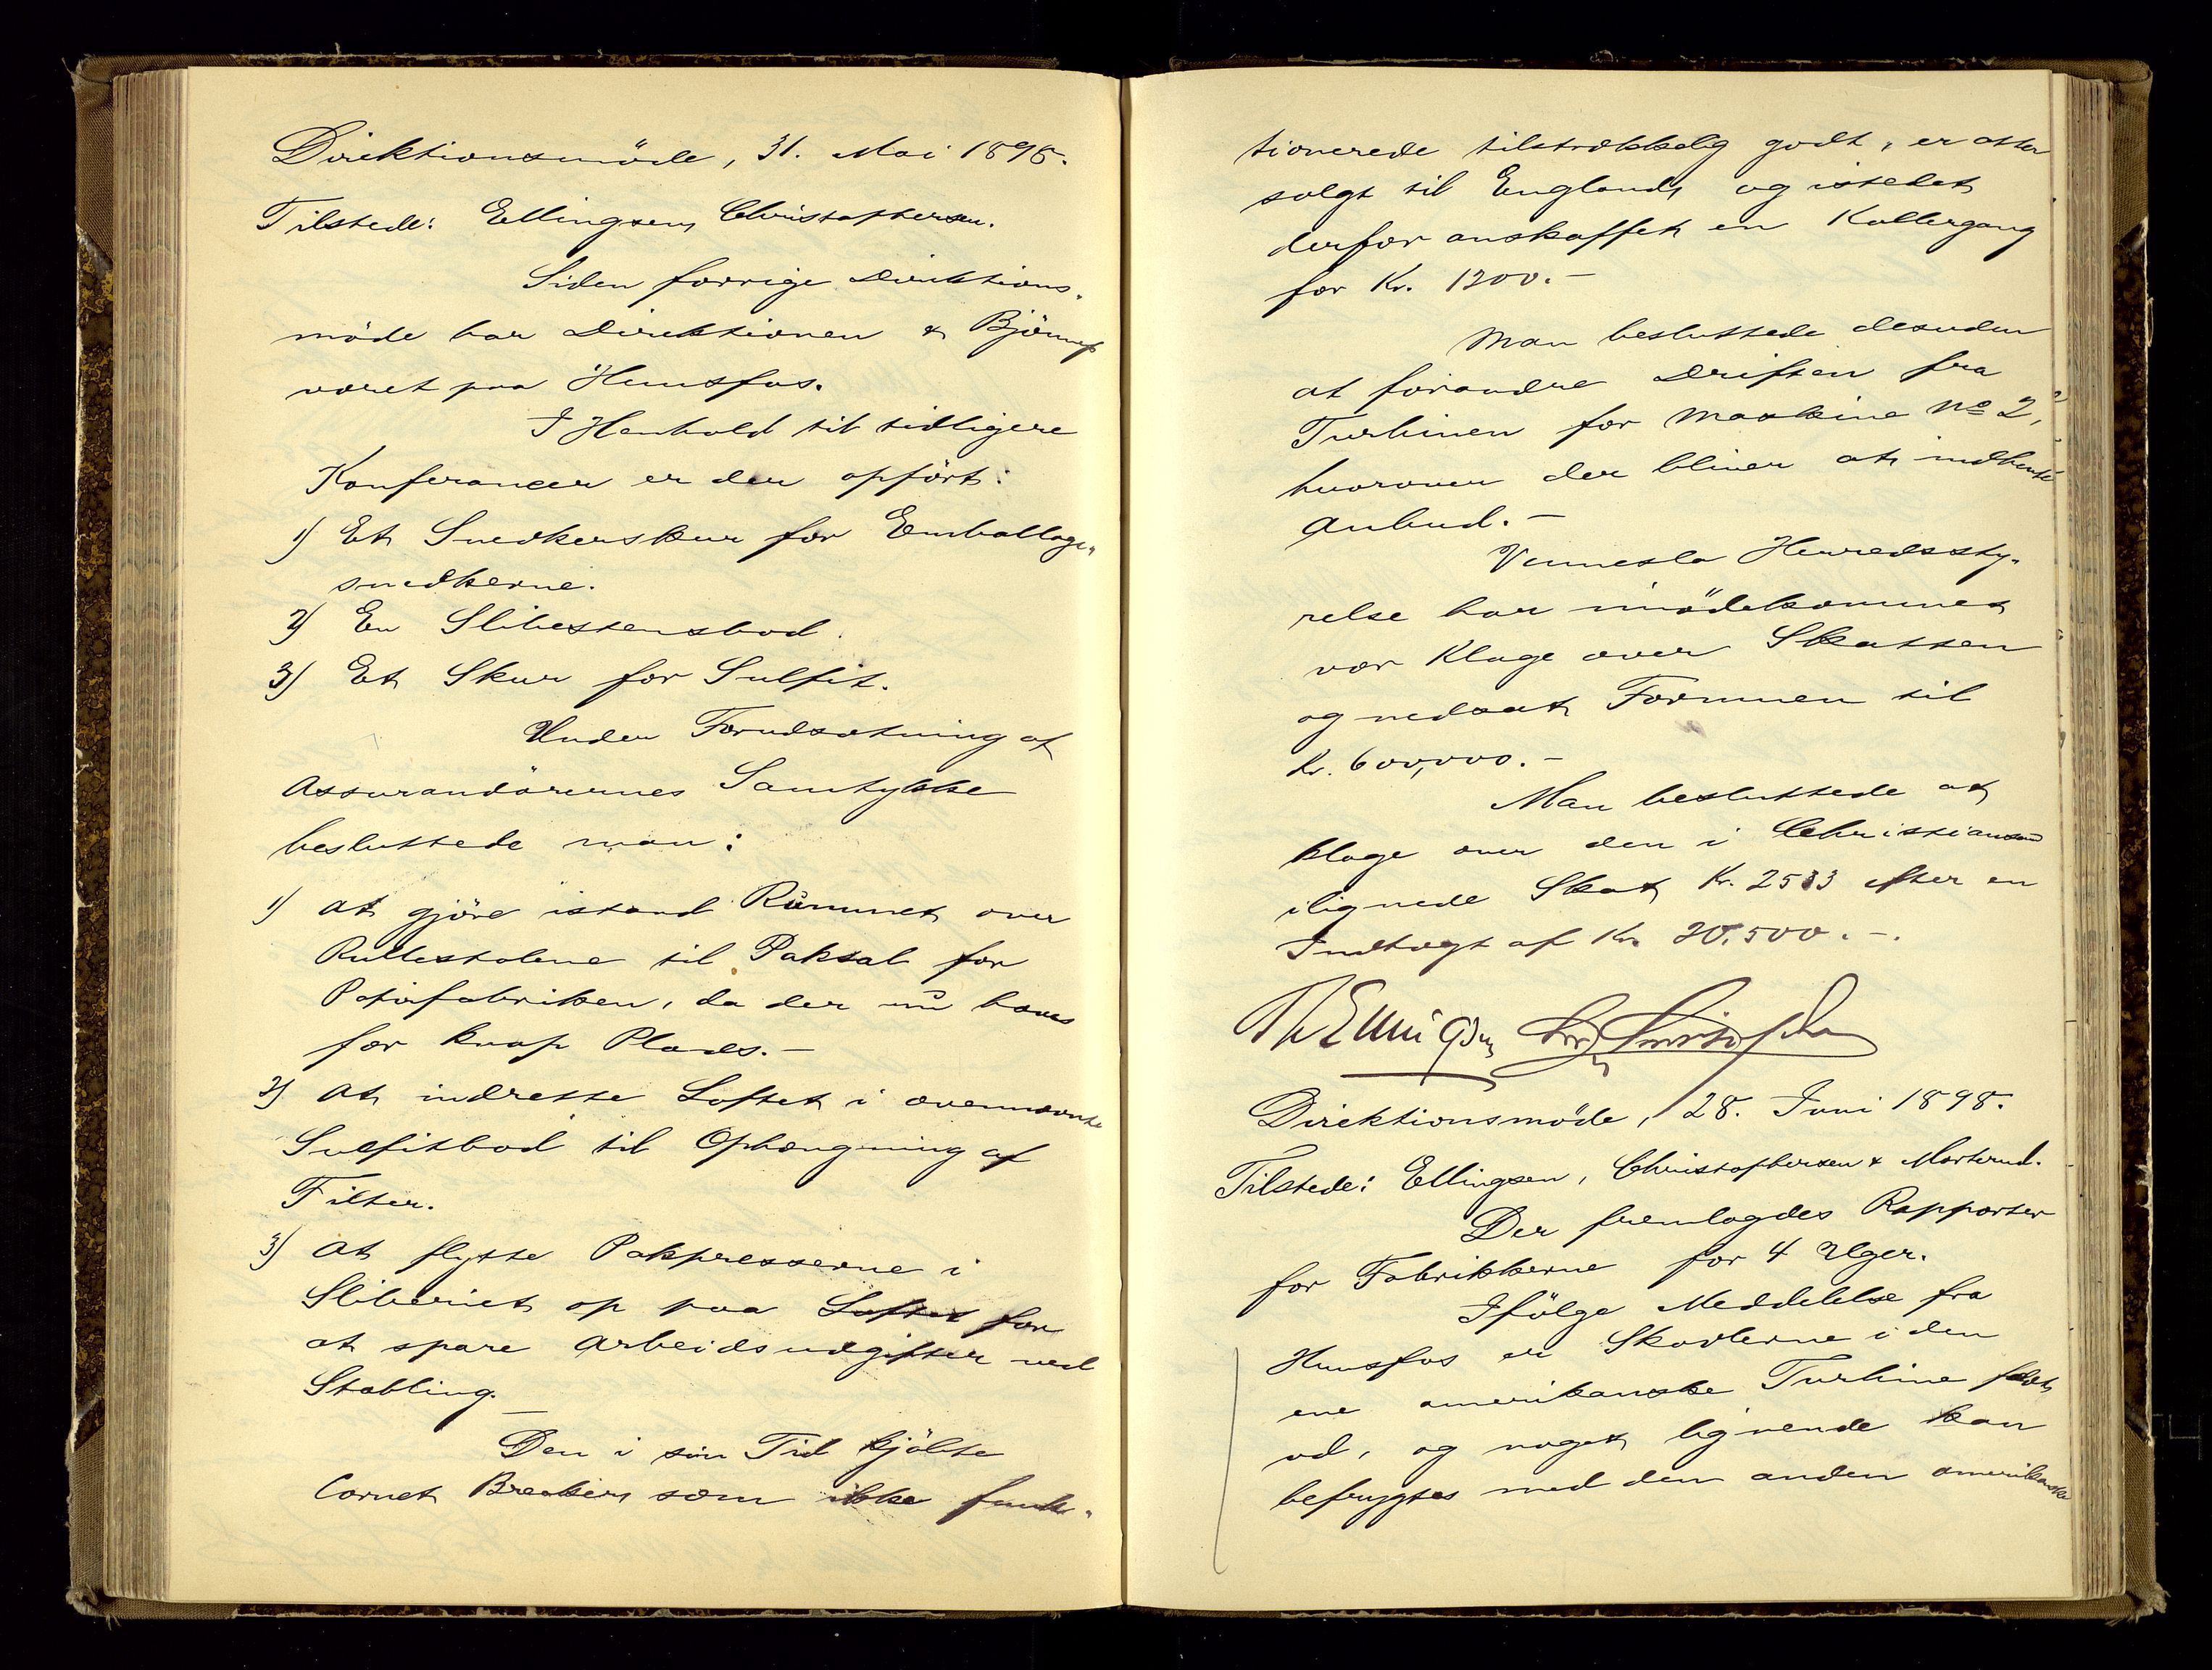 Direktionsmöde, 31. Mai 1898.
Tilstede: Ellingsen, Christophersen.
Siden forrige Direktions-
möde har Direktionen &
været paa Hunsfos.
I Henhold til tidligere
Konferancer er der opfört:
1) Et Snedkerskur for Emballage-
snedkerne.
2) En Slibestensbod.
3) Et Skur for Sulfit.
Under Forudsætning af
Assurandörernes Samtykke
besluttede man:
1) At gjöre istand Rummet over
Rullestolene til Paksal for
Papirfabriken, da der nu haves
for knap Plads.-
2) At indrette Loftet i ovennævnte
Sulfitbod til Ophængning af
Filter.
3) At flytte Pakpresserne i
Sliberiet op paa Loftet for
at spare Arbeidsudgifter ved
Stabling.-
Den i sin Tid kjöbte
Cornet Breaker, som ikke funk-
tionerede tilstrækkelig godt, er atter
solgt til England, og istedet
derfor anskaffet en Kollergang
for Kr. 1200.-
Man besluttede desuden
at forandre Driften fra
Turbinen for Maskine No 2,
hvorover der bliver at indhente
Anbud.-
Vennesla Herredssty-
relse har imödekommet
vor Klage over Skatten
og nedsat Formuen til
Kr. 600,000.-
Man besluttede at
klage over den i Christiansand
ilignede Skat Kr. 2533 efter en
Indtægt af Kr. 20,500.-.
Th Ellingsen Christophersen
Direktionsmöde, 28. Juni 1898.
Tilstede: Ellingsen, Christophersen & Morterud.
Der fremlagdes Rapporter
for Fabrikkerne for 4 Uger.
Ifölge Meddelelse fra
Hunsfos er Skovlerne i den
ene amerikanske Turbine faldt
ud, og noget lignende kan
befrygtes med den anden amerikanske